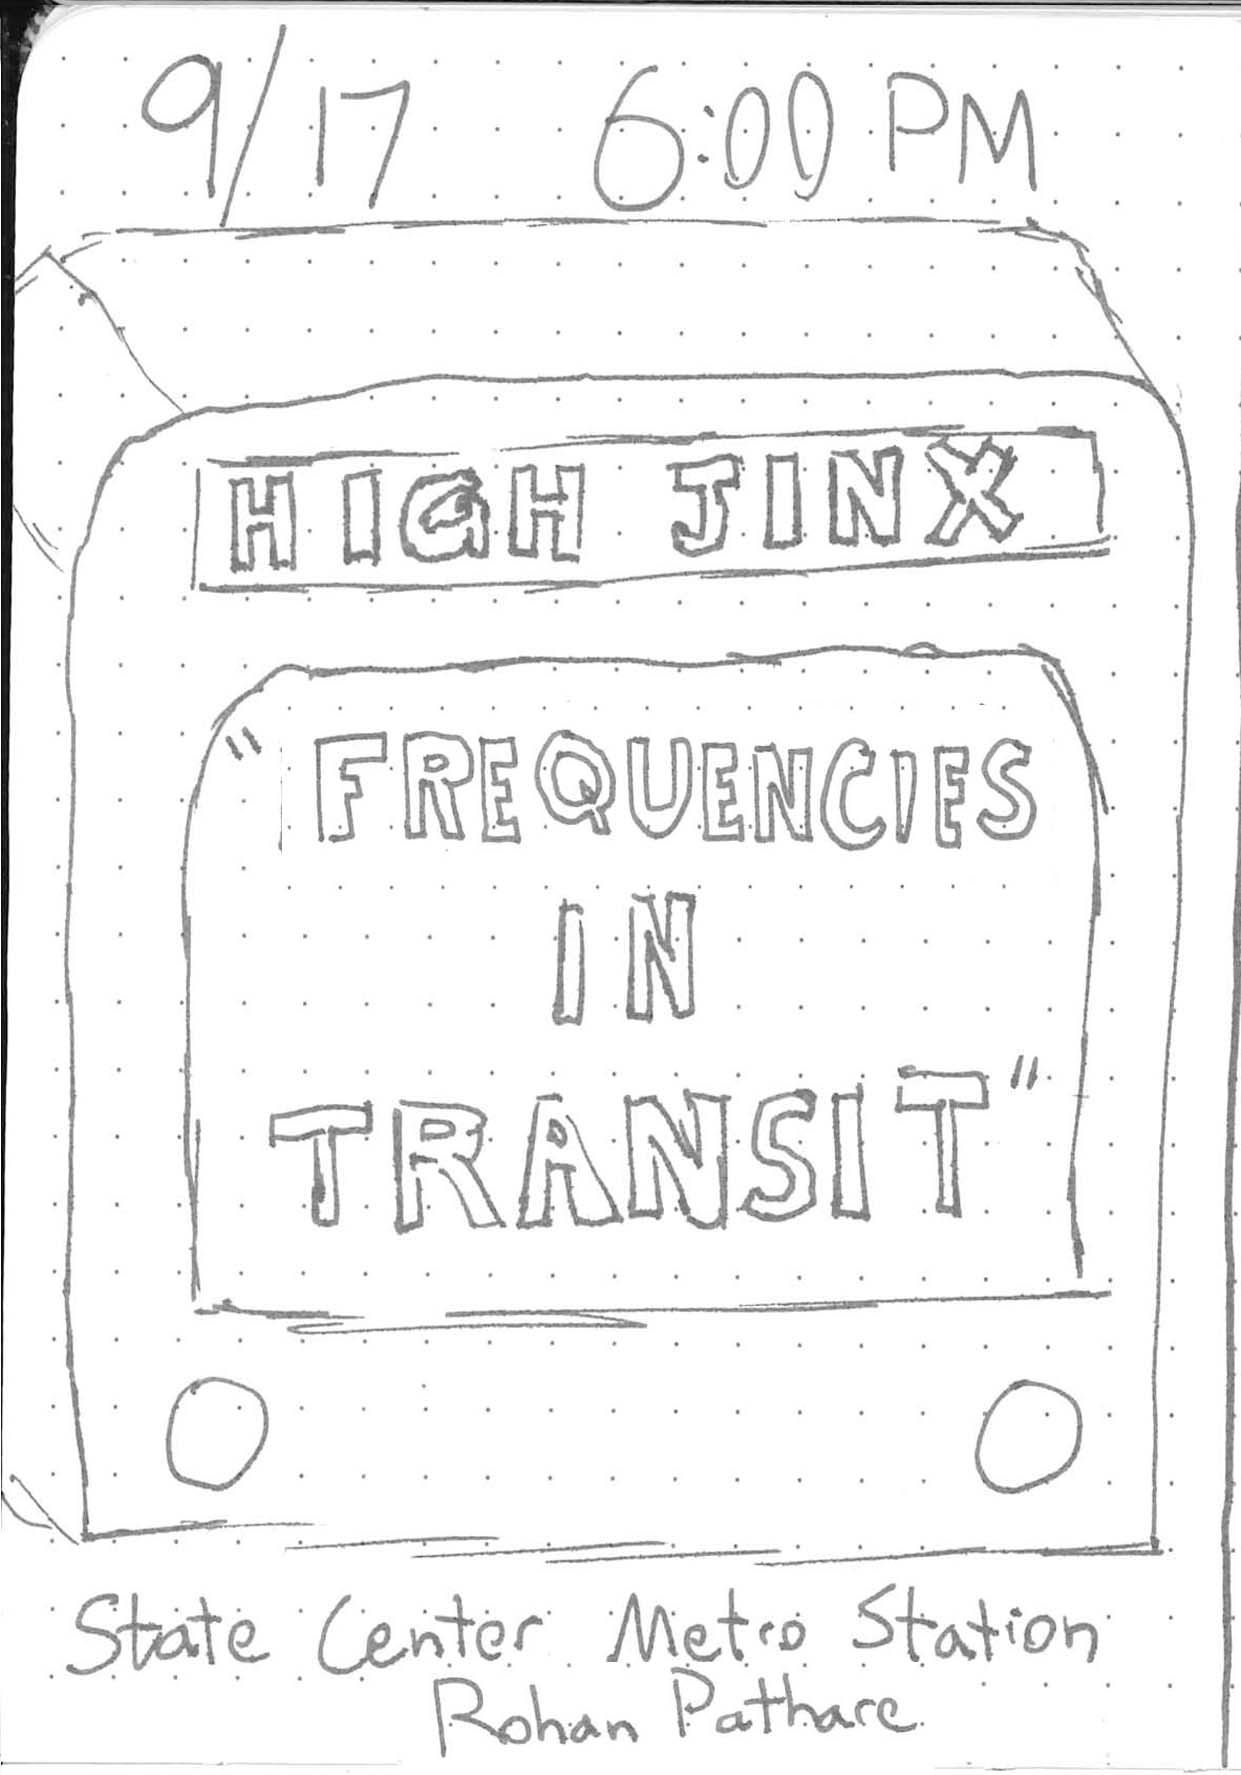 9/17 6:00 PM
HIGH JINX
"FREQUENCIES
IN
TRANSIT"
State Center Metro Station
Rohan Pathare